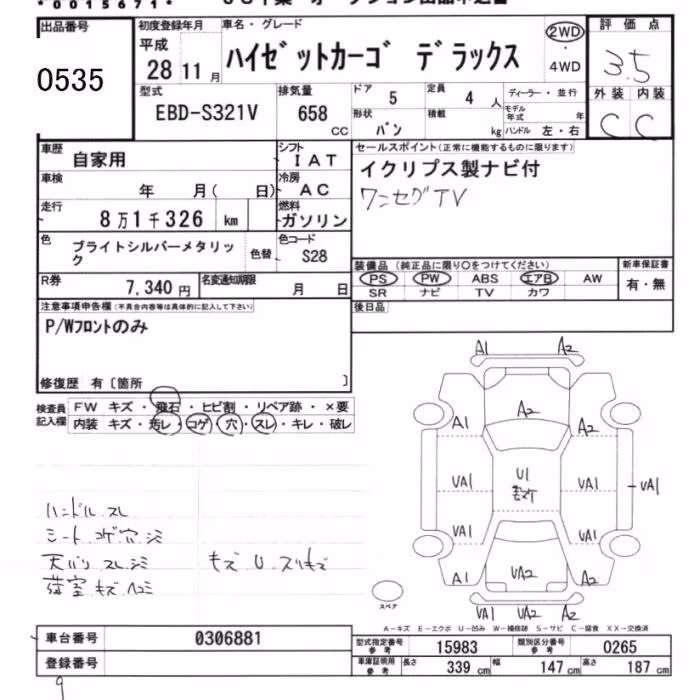 *0015671*
出品番号
0535
初度登録年月
平成
28 11月
車名・グレード
ハイゼットカーゴ デラックス
2WD
・
4WD
評価点
3.5
外装 内装
C C
型式
EBD-S321V
排気量
658
CC
ドア
5
定員
4人
形状
バン
積載
kg
ディーラー・並行
モデル年式 年
ハンドル 左・右
車歴
自家用
シフト
IAT
車検
年 月( 日)
冷房
AC
走行
8万1千326 km
燃料
ガソリン
色
ブライトシルバーメタリック
色替
色コード
S28
R券
7,340円
名変通知期限
月 日
セールスポイント(正常に機能するものに限ります)
イクリプス製ナビ付
ワンセグTV
装備品(純正品に限り○をつけてください)
PS PW ABS エアB AW
SR ナビ TV カワ
新車保証書
有・無
後日品
注意事項申告欄(不具合内容等は具体的に記入して下さい)
P/Wフロントのみ
修復歴 有〔箇所 〕
検査員記入欄
FW キズ・飛石・ヒビ割・リペア跡・×要
内装 キズ・汚レ・コゲ・穴・スレ・キレ・破レ
ハンドル スレ
シート コゲ穴 シミ
天バリ スレ シミ
荷室 キズ ヘコミ
キズ U スリキズ
A1 A2
A1 A2 A2
VA1 U1 VA1 VA1
VA1 VA1
A1 VA2 A2
VA1 VA2 A2
スペア
A-キズ E-エクボ U-凹み W-補修跡 S-サビ C-腐食 XX-交換済
車台番号
0306881
登録番号
型式指定番号
参考
15983
類別区分番号
参考
0265
車庫証明用
参考
長さ
339 cm
幅
147 cm
高さ
187 cm
9